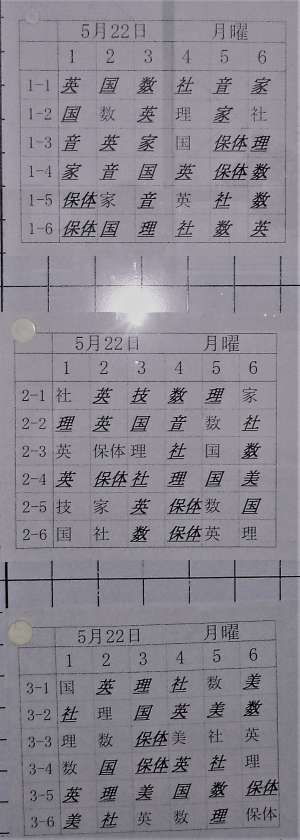 5月22日 月曜
1 2 3 4 5 6
1-1 英 国 数 社 音 家
1-2 国 数 英 理 家 社
1-3 音 英 家 国 保体 理
1-4 家 音 国 英 保体 数
1-5 保体 家 音 英 社 数
1-6 保体 国 理 社 数 英
5月22日 月曜
1 2 3 4 5 6
2-1 社 英 技 数 理 家
2-2 理 英 国 音 数 社
2-3 英 保体 理 社 国 数
2-4 英 保体 社 理 国 美
2-5 技 家 英 保体 数 国
2-6 国 社 数 保体 英 理
5月22日 月曜
1 2 3 4 5 6
3-1 国 英 理 社 数 美
3-2 社 理 国 英 美 数
3-3 理 数 保体 美 社 英
3-4 数 国 保体 英 社 理
3-5 英 理 美 国 数 保体
3-6 美 社 英 数 理 保体